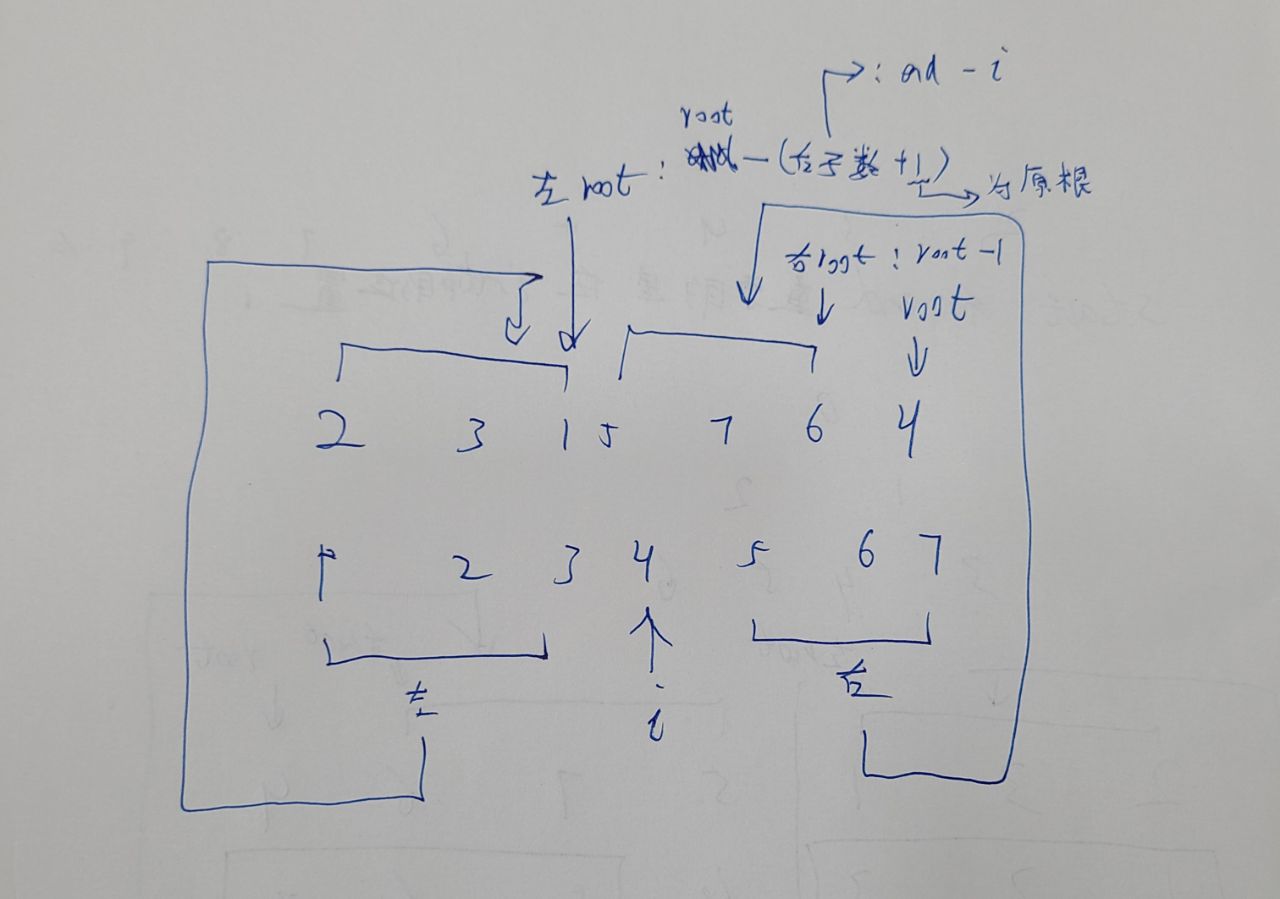 : end - i
root
左 root : - (右子数 + 1)
为原根
右root : root - 1
root
2 3 1 5 7 6 4
1 2 3 4 5 6 7
左 右
i